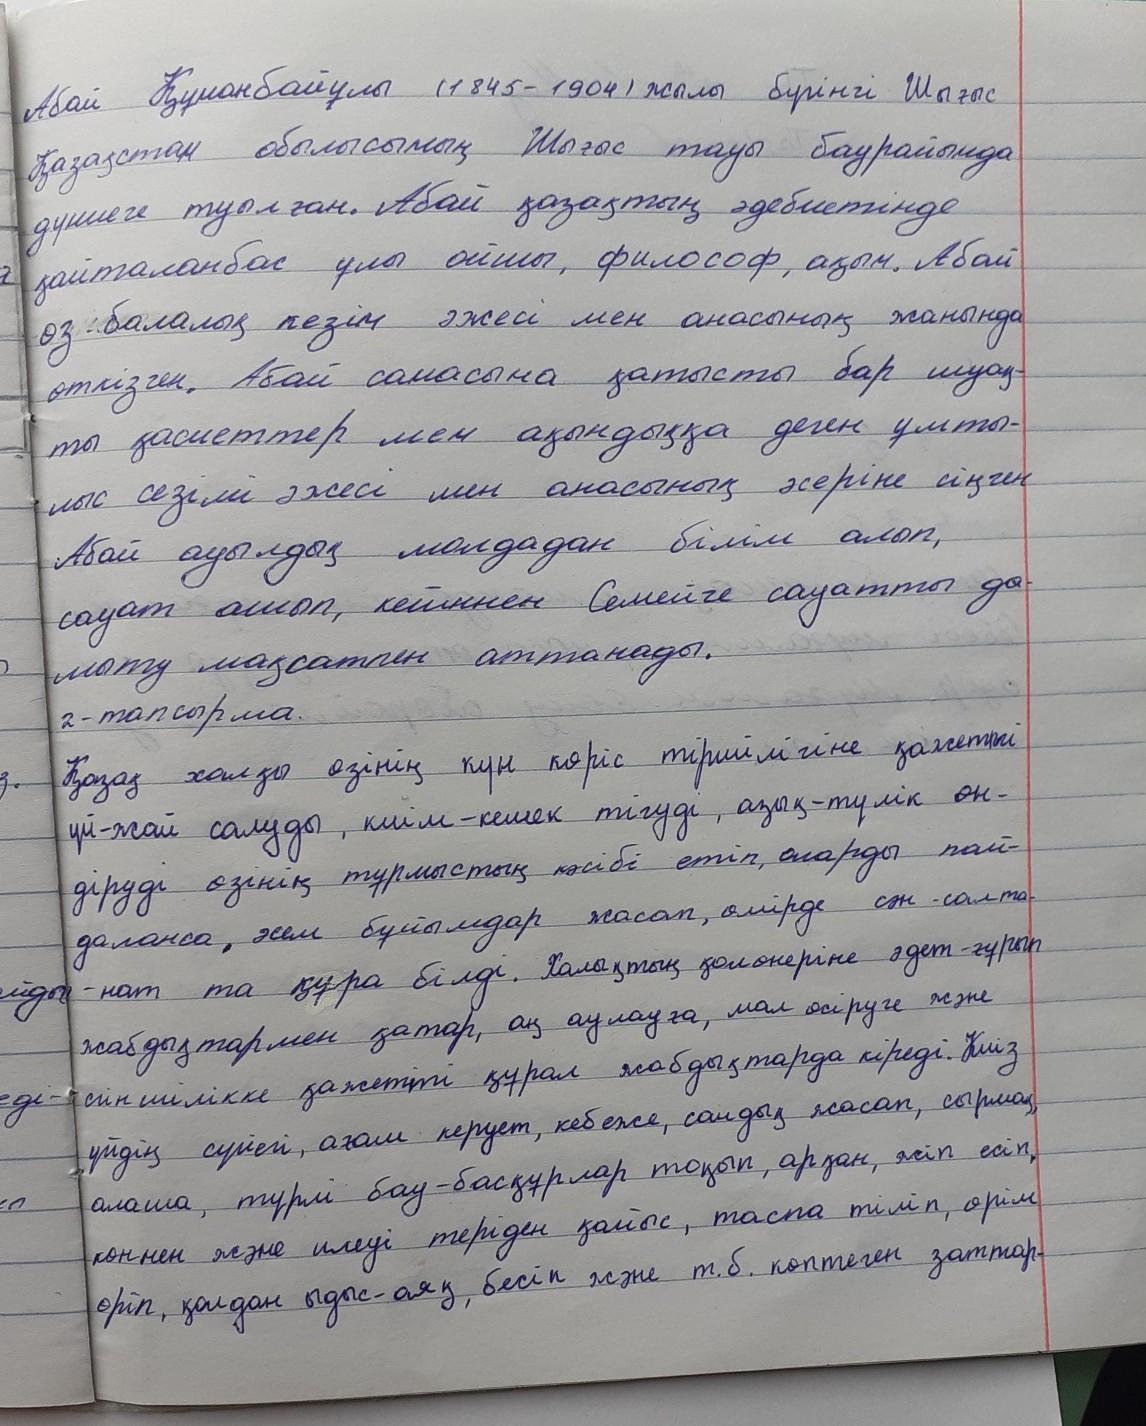 Абай Құнанбайұлы (1845-1904) жылы бүгінгі Шығыс
Қазақстан обылысының Шығыс тауы баурайында
дүниеге туылған. Абай қазақтың әдебиетінде
қайталанбас ұлы ойшы, философ, ақын. Абай
өз балалық кезін әжесі мен анасының жанында
өткізген. Абай санасына қатысты бар шуақ-
ты қасиеттер мен ақындыққа деген ұмты-
лыс сезімі әжесі мен анасының әсеріне сіңген
Абай ауылдық молдадан білім алып,
сауат ашып, кейіннен Семейге сауатты да-
мыту мақсатпен аттанады.
2-тапсырма.
Қазақ халқы өзінің күн көріс тіршілігіне қажетті
үй-жай салуды, киім-кешек тігуді, азық-түлік өн-
діруді өзінің тұрмыстың кәсібі етіп, оларды пай-
даланса, әсем бұйымдар жасап, өмірде сән-салта-
-нат та құра білді. Халықтың қолөнеріне әдет-ғұрып
жабдықтармен қатар, аң аулауға, мал өсіруге және
егіншілікке қажетті құрал жабдықтарда кіреді. Киіз
үйдің сүйегі, ағаш керует, кебеже, сандық жасап, сырмақ,
алаша, түрлі бау-басқұрлар тоқып, арқан, жіп есіп,
көннен және илеуі теріден қайыс, таспа тіліп, өрім
өріп, қолдан ыдыс-аяқ, бесік және т.б. көптеген заттар-